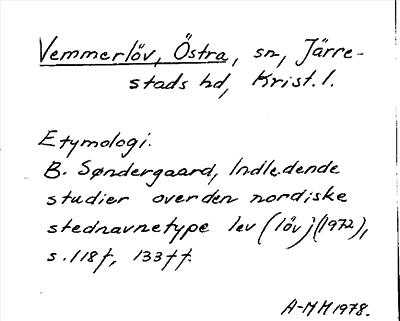 Vemmerlöv, Östra, sn, Järre-
stads hd, Krist. l.
Etymologi.
B. Søndergaard, Indledende
studier over den nordiske
stednavnetype lev (löv) (1972),
s. 118f, 133ff.
A-MM 1978.